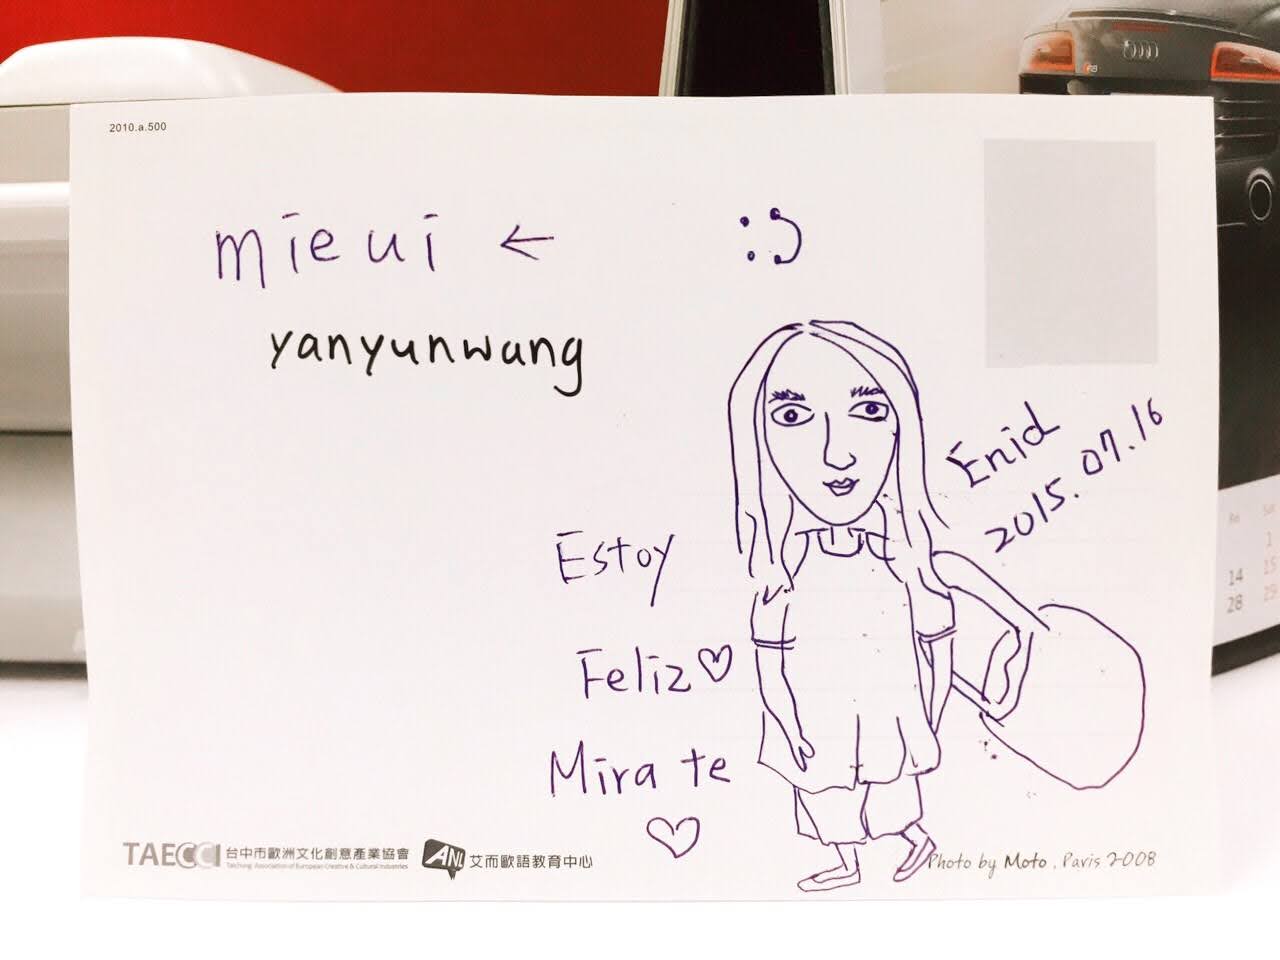 2010.a.500
mieui ← :)
yanyunwang
Enid
2015.07.16
Estoy
Feliz ♡
Mira te
♡
TAECCI 台中市歐洲文化創意產業協會
Taichung Association of European Creative & Cultural Industries
ANL 艾而歐語教育中心
Photo by Moto, Paris 2008
R8
Sat
1
14 15
28 29